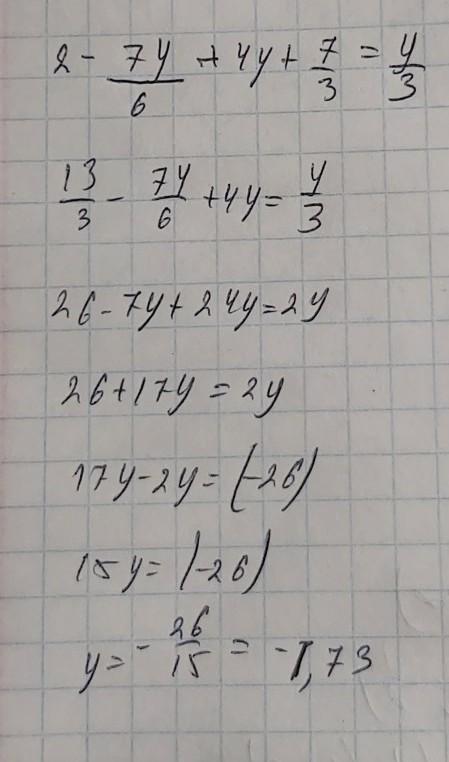 2 - 7y/6 + 4y + 7/3 = y/3
13/3 - 7y/6 + 4y = y/3
26 - 7y + 24y = 2y
26 + 17y = 2y
17y - 2y = (-26)
15y = (-26)
y = - 26/15 = -1,73